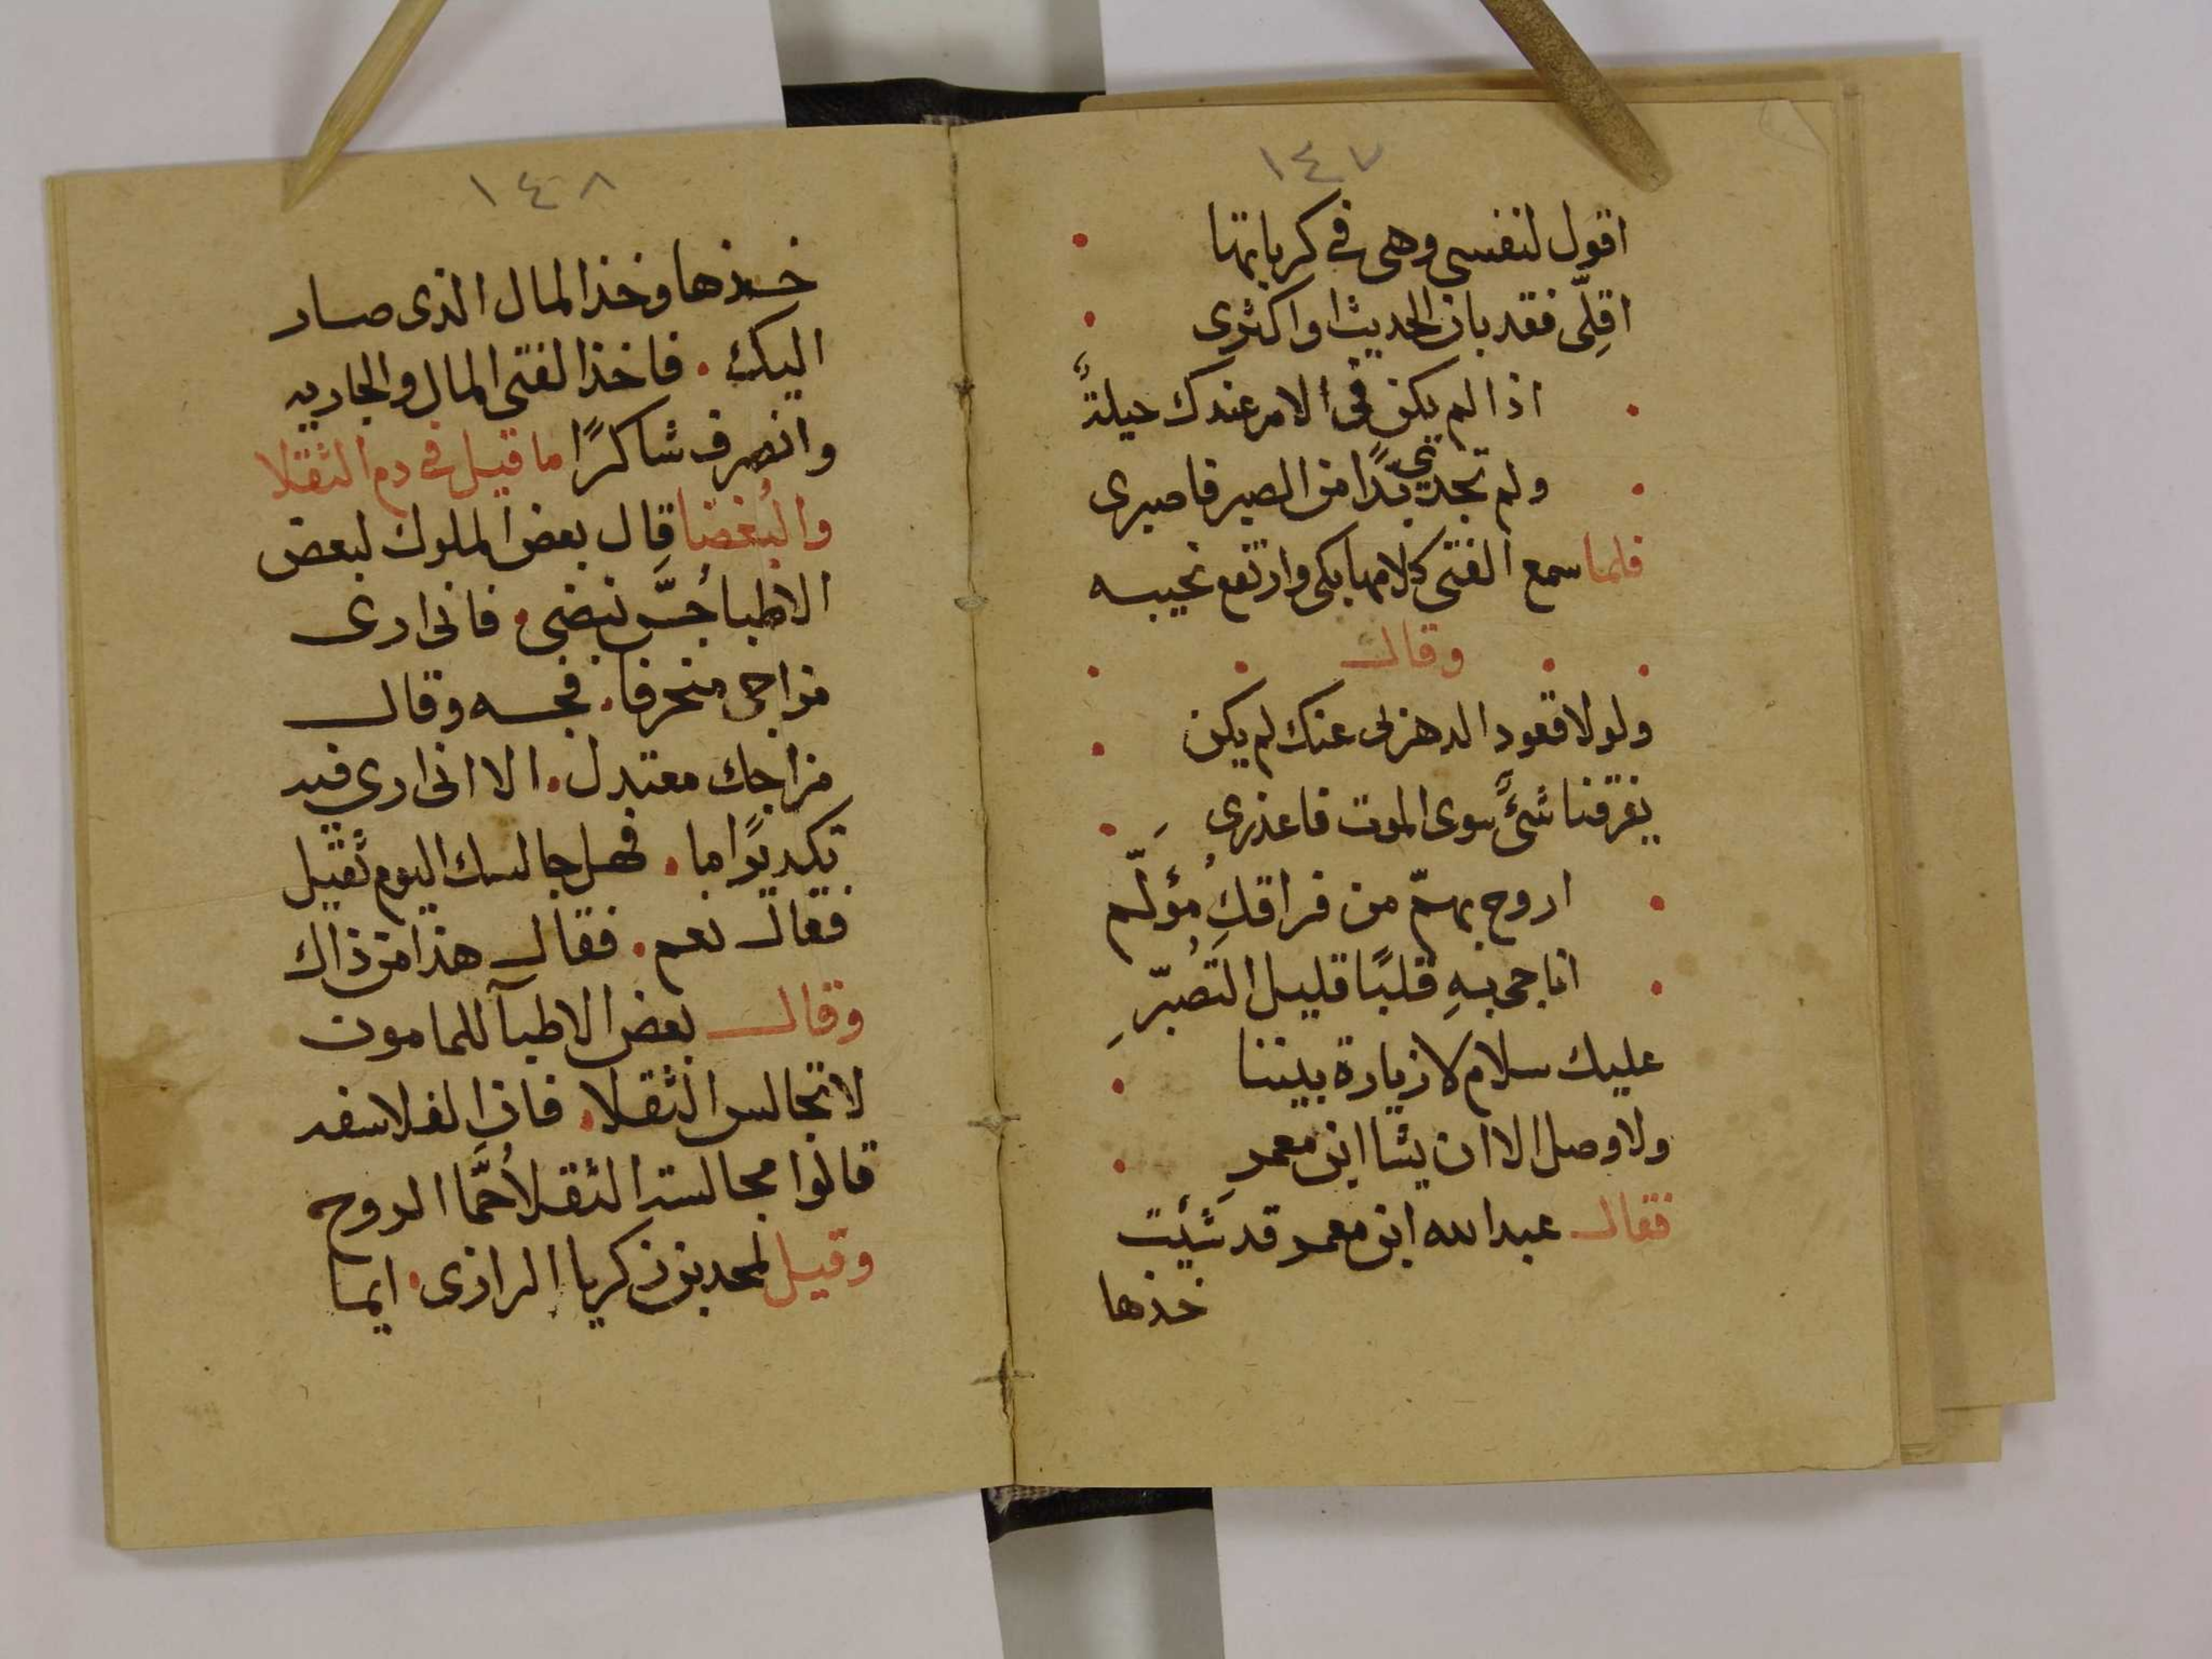 ١٤٧
اقول لنفسي وهى فى كرباتها
اقِلّى فقد بان الحديث او اكثرى
اذا لم يكن فى الامر عندك حيلةٌ
ولم تجدي بدًا من الصبر فاصبرى
فلما سمع الفتى كلامها بكى وارتفع نحيبه
وقال
ولولا قعود الدهر لى عنك لم يكن
يفرقنا شىًٔ سوى الموت فاعذرى
اروح بهمّ من فراقكِ مؤلّم
اناجى بهِ قلبًا قليل التصُبّرِ
عليك سلام لا زيارة بيننا
ولا وصل الا ان يشا ابن معمرِ
فقال عبد الله ابن معمر قد شئت
خذها
١٤٨
خذها وخذ المال الذى صار
اليك. فاخذ الفتى المال والجاريه
وانصرف شاكرًا ما قيل فى دم الثقلا
والبُغضا قال بعض الملوك لبعض
الاطبا جُسّ نبضى. فانى ارى
مزاجى منحرفا. فجسه وقال
مزاجك معتدل. الا انى ارى فيه
تكديرًا ما. فهل جالسك اليوم ثقيل
فقال نعم. فقال هذا من ذاك
وقال بعض الاطبآ للمامون
لا تجالس الثقلا. فان الفلاسفه
قالوا مجالسة الثقلا حُمَّا الروح
وقيل لمحمد بن زكريا الرازى. ايما